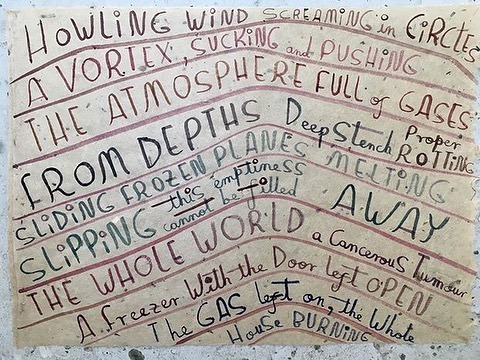 HOWLING WIND SCREAMING in CIRCLES
A VORTEX, SUCKING and PUSHING
THE ATMOSPHERE FULL of GASES
FROM DEPTHS Deep Stench Proper ROTTING
SLIDING FROZEN PLANES MELTING
SLIPPING this emptiness cannot be filled AWAY
THE WHOLE WORLD a Cancerous Tumour
A freezer With the Door left OPEN
The GAS left on, the Whole
House BURNING